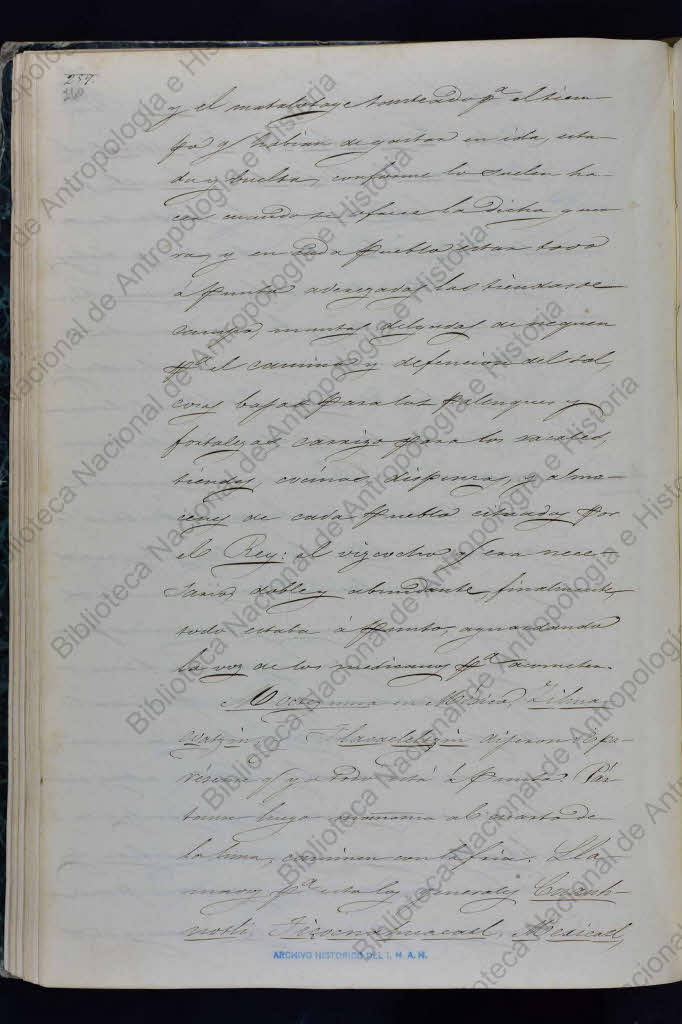 259.
260
y el matalotaje tonteado pª. el tiem-
po q habian de gastar en ida, esta-
da y buelta, conforme lo suelen ha-
cer cuando se ofrece la dicha guer-
ra, y en cada Pueblo estar todo
á punto aderezadas las tiendas de
campo, mantas delgadas de nequen
pª. el camino y defencion del sol,
cosas bajas para los palenques y
fortalezas, carrizo para los xacales,
tiendas, cocinas, dispensas, y alma-
cenes de cada Pueblo situados por
el Rey: el vizcocho q era nece-
sario, doble y abundante finalmente,
todo estaba á punto, aguardando
la voz de los mexicanos pª. acometer.
Moctezuma en México, Zihua-
coatzin, y Tlacaeleltzin dijeron:
q ya todo está á punto: Pár-
tanse luego mañana al cuarto de
la luna, caminen con la fria. Lla-
maron pª. esto los generales Cuauh-
nochtli, Mexicatl,
ARCHIVO HISTORICO DEL I. N. A. H.
Biblioteca Nacional de Antropología e Historia